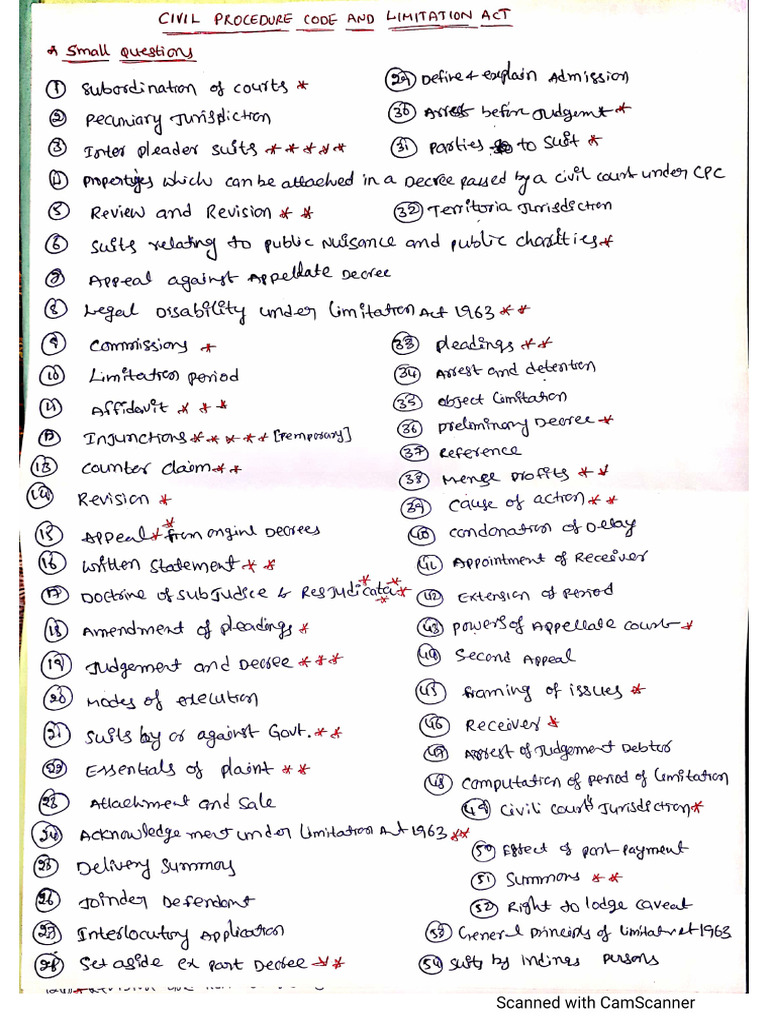 CIVIL PROCEDURE CODE AND LIMITATION ACT
* Small Questions
① Subordination of courts *
② Pecuniary Jurisdiction
③ Inter pleader suits * * * * *
④ Properties which can be attached in a Decree passed by a civil court under CPC
⑤ Review and Revision * *
⑥ Suits relating to public Nuisance and public charities *
⑦ Appeal against Appellate Decree
⑧ Legal Disability under Limitation Act 1963 * *
⑨ Commissions *
⑩ Limitation period
⑪ Affidavit * * *
⑫ Injunctions * * * * * [Temporary]
⑬ counter claim * *
⑭ Revision *
⑮ Appeal * * from origine Decrees
⑯ Written Statement * *
⑰ Doctrine of Subjudice & Resjudicata * * * *
⑱ Amendment of pleadings *
⑲ Judgement and Decree * * *
⑳ Modes of execution
㉑ Suits by or against Govt. * *
㉒ Essentials of plaint * *
㉓ Attachment and Sale
㉔ Acknowledgement under Limitation Act 1963 * *
㉕ Delivery Summoy
㉖ Joinder Defendant
㉗ Interlocutiry Application
㉘ Set aside ex part Decree * *
㉙ Define & explain Admission
㉚ Arrest before Judgement *
㉛ Parties to Suit *
㉜ Territoria Jurisdiction
㉝ pleadings * *
㉞ Arrest and detention
㉟ Object Limitation
㊱ Preliminary Decree *
㊲ Reference
㊳ Menge Profits * *
㊴ Cause of action * *
㊵ Condonation of Delay
㊶ Appointment of Receiver
㊷ Extension of Period
㊸ Powers of Appellate Court *
㊹ Second Appeal
㊺ Framing of issues *
㊻ Receiver *
㊼ Arrest of Judgement Debtor
㊽ Computation of period of Limitation
㊾ Civil courts Jurisdiction *
㊿ Effect of part-payment
(51) Summons * *
(52) Right to lodge caveat
(53) General Principls of limitat Act 1963
(54) Suits by persons
Scanned with CamScanner